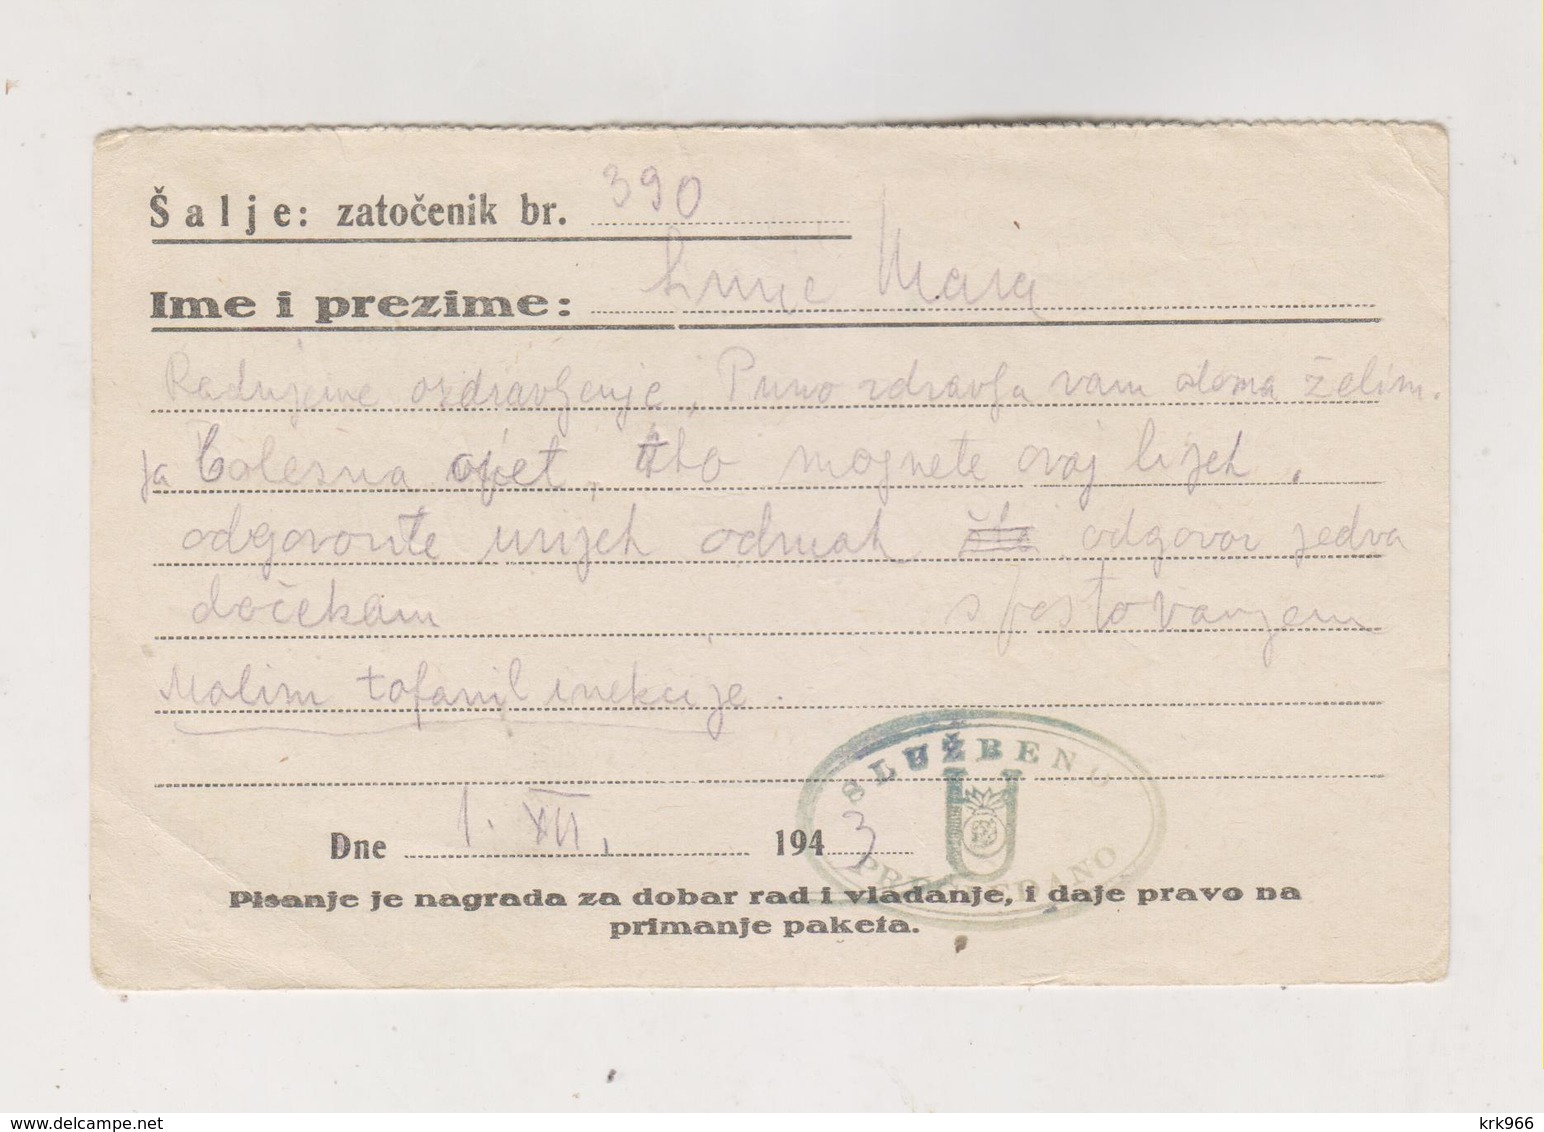 Šalje: zatočenik br. 390
Ime i prezime: Mara
Radujeme ozdravljenje, Puno zdravlja vam doma želim.
ja bolesna opet, ako mognete ovaj lijek,
odgovorite uvijek odmah odgovor jedva
dočekam s poštovanjem
Molim tofanil inekcije.
SLUŽBENO
U
Dne 1. XII. 1943
Pisanje je nagrada za dobar rad i vladanje, i daje pravo na
primanje paketa.
krk966